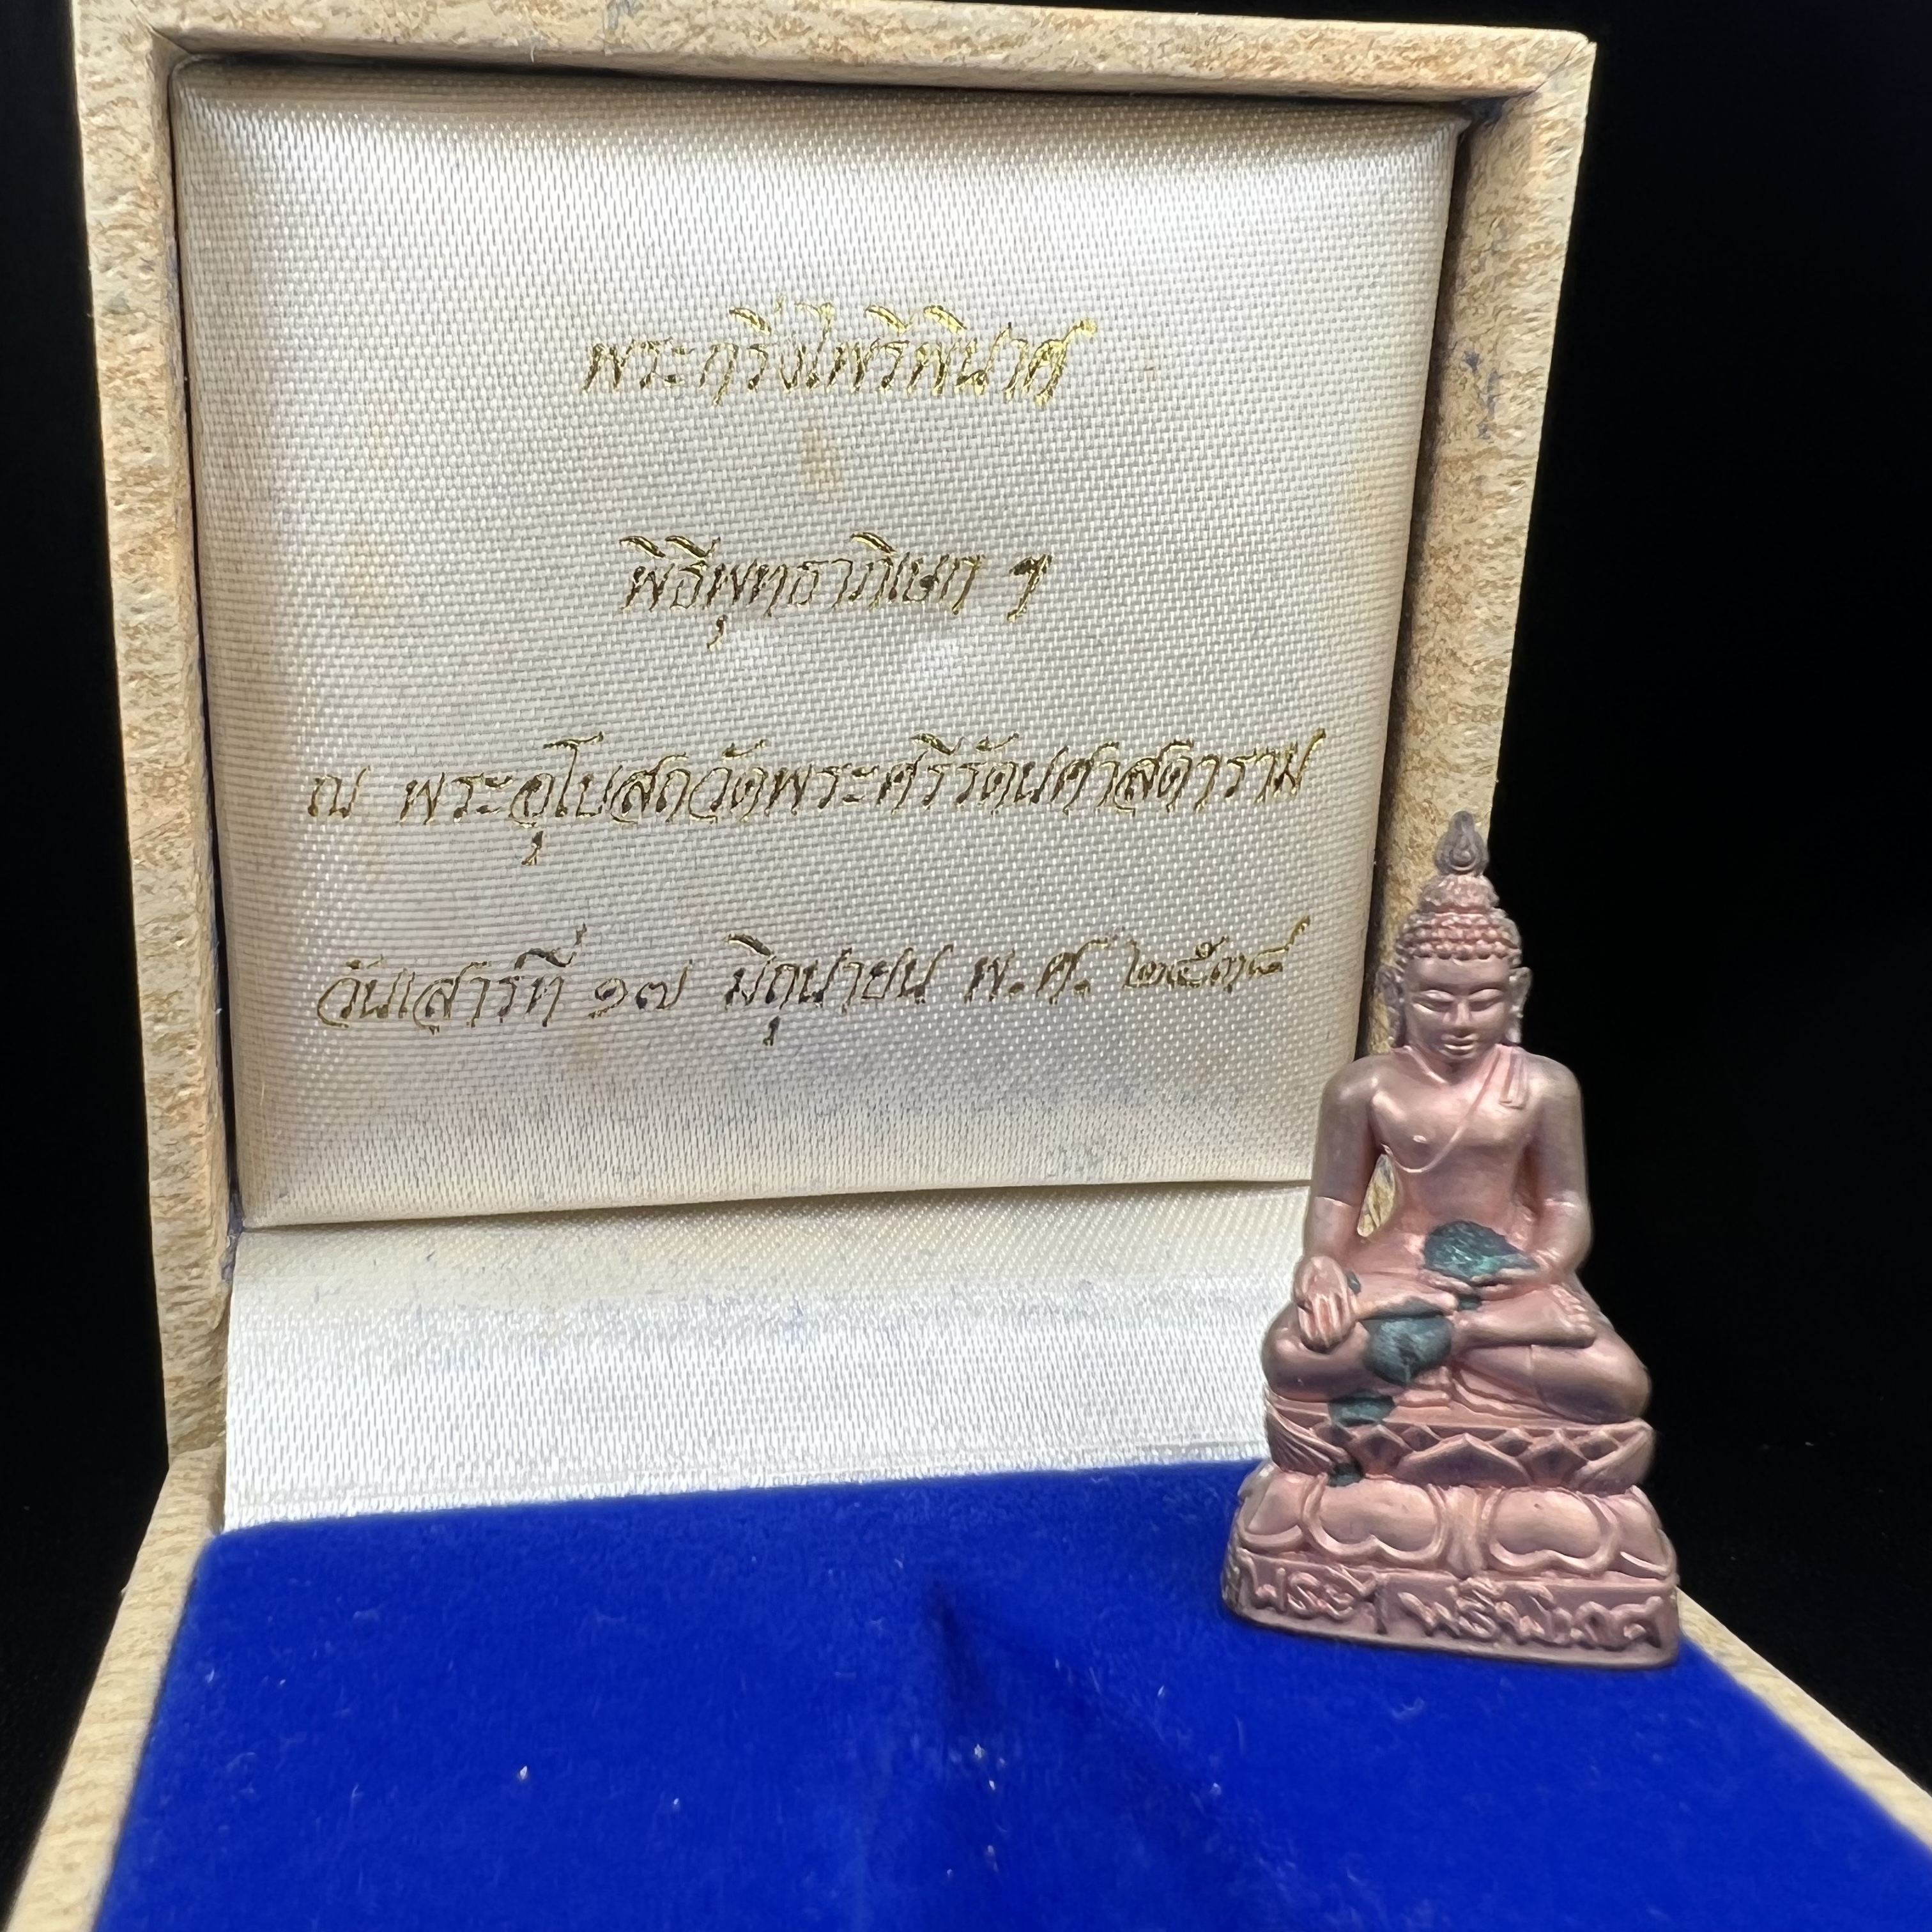 พระกริ่งไพรีพินาศ
พิธีพุทธาภิเษก ฯ
ณ พระอุโบสถวัดพระศรีรัตนศาสดาราม
วันเสาร์ที่ ๑๗ มิถุนายน พ.ศ. ๒๕๓๘
พระไพรีพินาศ